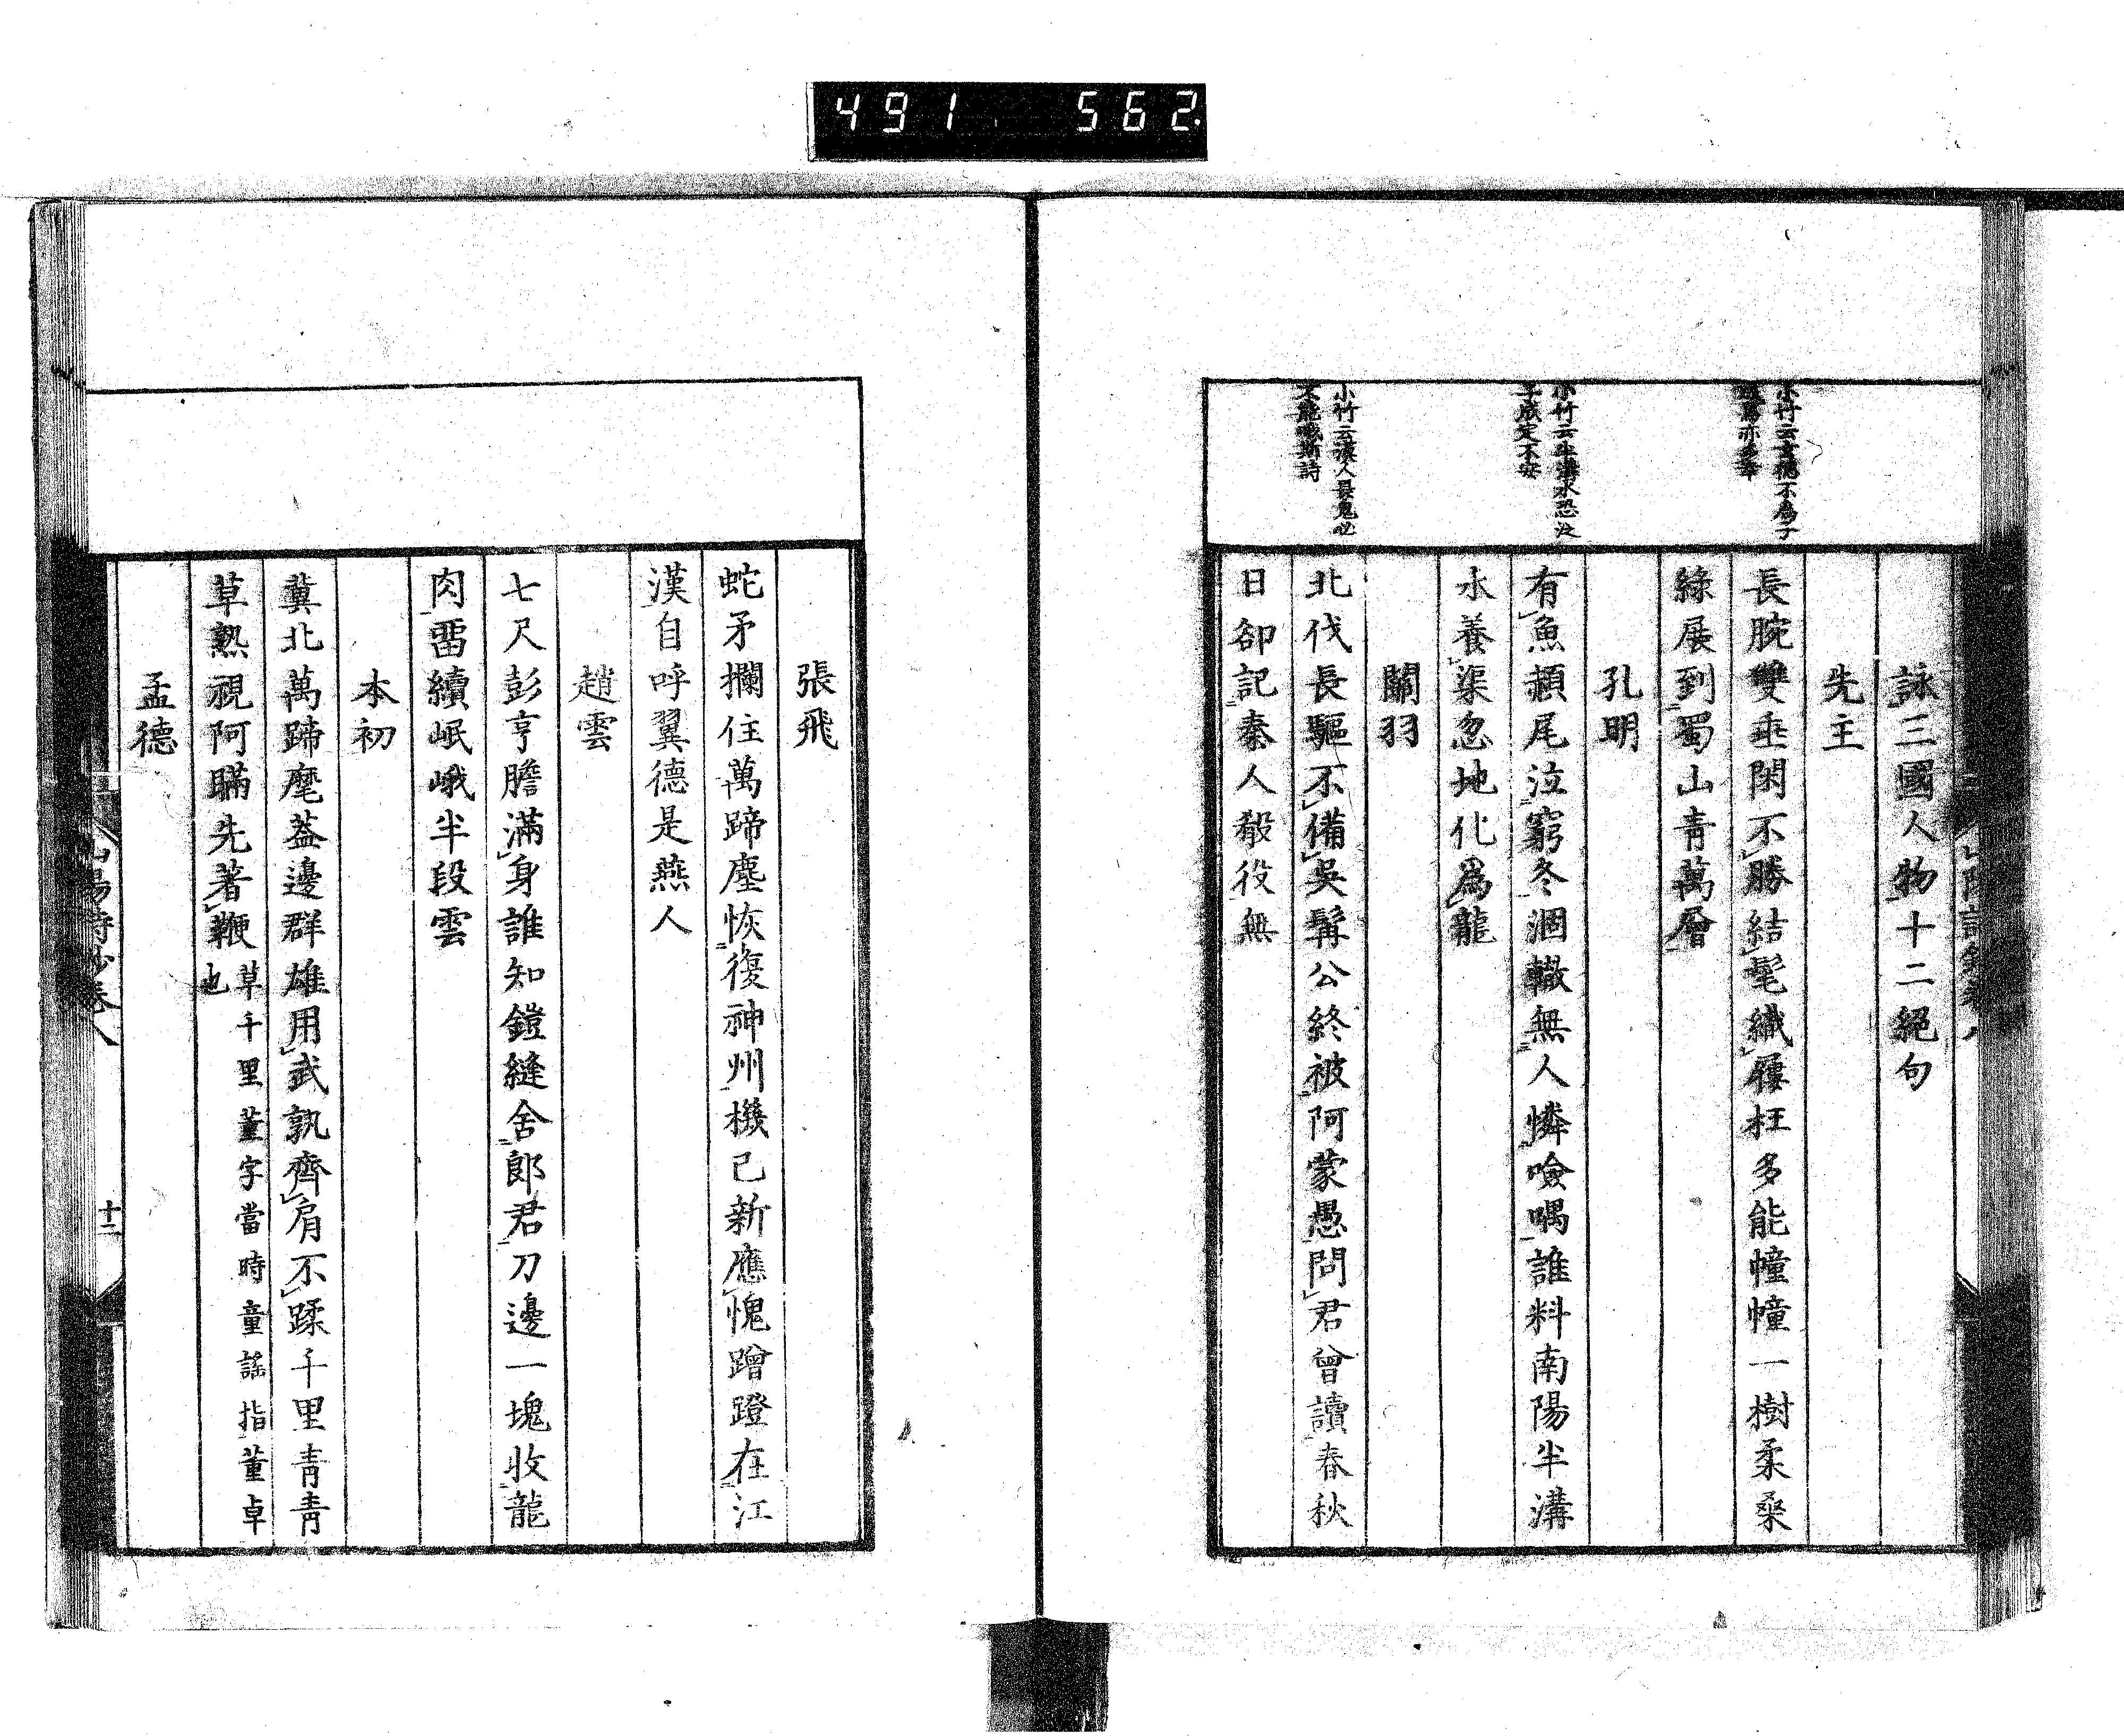 491 562
詠三國人物十二絕句
先主
長腕雙垂閑不勝結髦織屨枉多能幢幢一樹柔桑
綠展到蜀山靑萬層
孔明
有魚頳尾泣窮冬涸轍無人憐噞喁誰料南陽半溝
水養渠忽地化爲龍
關羽
北伐長驅不備吳髯公終被阿蒙愚問君曾讀春秋
日卻記秦人殽役無
小竹云半溝水恐泛
字成定不安
小竹云漢人畏鬼必
不能喊斯詩
張飛
蛇矛攔住萬蹄塵恢復神州機已新應愧蹭蹬在江
漢自呼翼德是燕人
趙雲
七尺彭亨膽滿身誰知鎧縫舍郎君刀邊一塊收龍
肉畱續岷峨半段雲
本初
冀北萬蹄麾葢邊群雄用武孰齊肩不蹂千里青青
草熟視阿瞞先著鞭
草千里董字當時童謠指董卓
也
孟德
山陽詩鈔卷八
十二